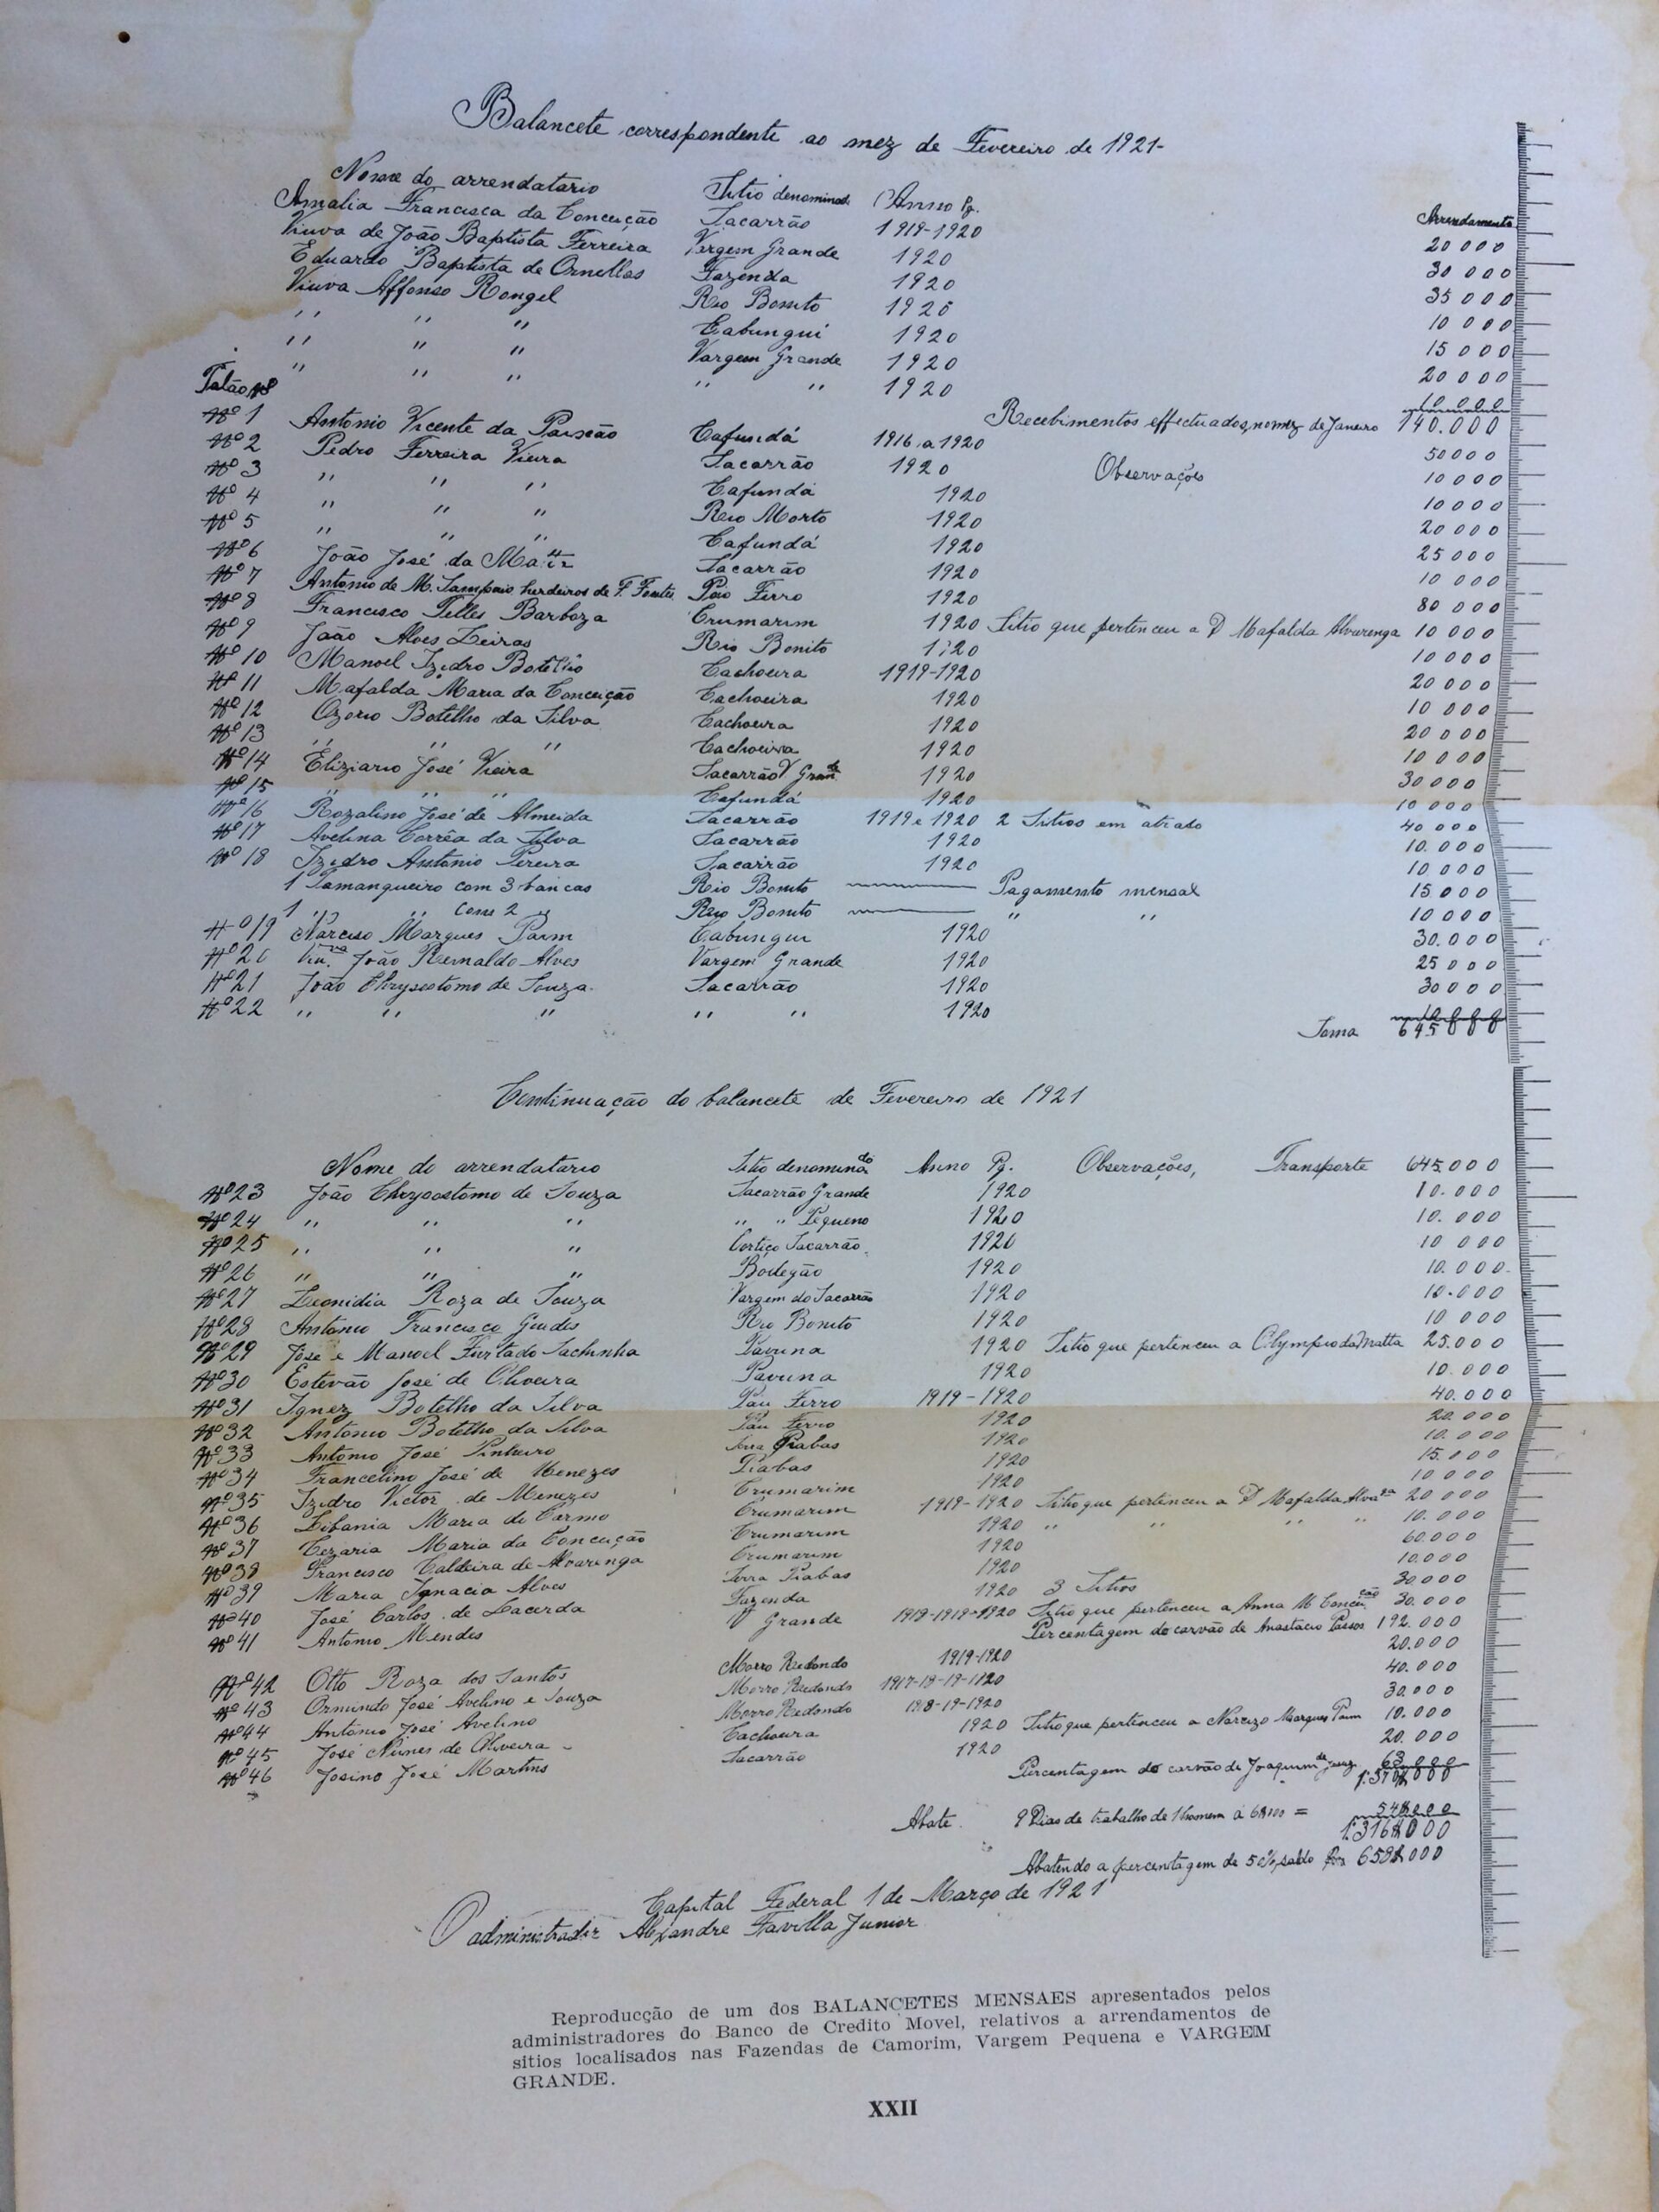 Balancete correspondente ao mez de Fevereiro de 1921-
Nome do arrendatario Sitio denominado Anno Pg. Arrendamento
Amalia Francisca da Conceição Sacarrão 1919-1920 20 000
Viuva de João Baptista Ferreira Vargem Grande 1920 30 000
Eduardo Baptista de Ornellas Fazenda 1920 35 000
Viuva Affonso Rongel Rio Bonito 1920 10 000
" " " Cabungui 1920 15 000
" " " Vargem Grande 1920 20 000
" " " " " 1920 10 000
Talão Nº Recebimentos effectuados, no mez de Janeiro 140.000
Nº 1 Antonio Vicente da Paixão Cafundá 1916 a 1920 50 000
Nº 2 Pedro Ferreira Vieira Sacarrão 1920 Observações 10 000
Nº 3 " " " Cafundá 1920 10 000
Nº 4 " " " Rio Morto 1920 20 000
Nº 5 " " " Cafundá 1920 25 000
Nº 6 João José da Matta Sacarrão 1920 10 000
Nº 7 Antonio de M. Sampaio herdeiros de F. Fontes Pao Ferro 1920 80 000
Nº 8 Francisco Telles Barboza Crumarim 1920 Sitio que pertenceu a D Mafalda Alvarenga 10 000
Nº 9 João Alves Leiras Rio Bonito 1920 10 000
Nº 10 Manoel Izidro Botelho Cachoeira 1919-1920 20 000
Nº 11 Mafalda Maria da Conceição Cachoeira 1920 10 000
Nº 12 Ozorio Botelho da Silva Cachoeira 1920 20 000
Nº 13 " " " Cachoeira 1920 10 000
Nº 14 Eliziario José Vieira Sacarrão V Grande 1920 30 000
Nº 15 " " " Cafundá 1920 10 000
Nº 16 Rozalino José de Almeida Sacarrão 1919 e 1920 2 Sitios em atraso 40 000
Nº 17 Avelina Corrêa da Silva Sacarrão 1920 10.000
Nº 18 Izidro Antonio Pereira Sacarrão 1920 10.000
1 Tamanqueiro com 3 bancas Rio Bonito Pagamento mensal 15.000
1 " " com 2 " Rio Bonito " " 10 000
Nº 19 Narciso Marques Paim Cabungui 1920 30.000
Nº 20 Viuva João Reinaldo Alves Vargem Grande 1920 25 000
Nº 21 João Chrysostomo de Souza Sacarrão 1920 30 000
Nº 22 " " " " " 1920 10 000
Soma 645 000
Continuação do balancete de Fevereiro de 1921
Nome do arrendatario Sitio denominado Anno Pg. Observações, Transporte 645.000
Nº 23 João Chrysostomo de Souza Sacarrão Grande 1920 10.000
Nº 24 " " " " " Pequeno 1920 10.000
Nº 25 " " " Cortiço Sacarrão 1920 10 000
Nº 26 " " " Bodegão 1920 10.000
Nº 27 Leonidia Roza de Souza Vargem do Sacarrão 1920 10.000
Nº 28 Antonio Francisco Guedes Rio Bonito 1920 10 000
Nº 29 José e Manoel Furtado Sachinha Pavuna 1920 Sitio que pertenceu a Olympio da Matta 25.000
Nº 30 Estevão José de Oliveira Pavuna 1920 10.000
Nº 31 Ignez Botelho da Silva Pau Ferro 1919-1920 40.000
Nº 32 Antonio Botelho da Silva Pau Ferro 1920 20.000
Nº 33 Antonio José Pinheiro Serra Piabas 1920 10.000
Nº 34 Francelino José de Menezes Piabas 1920 15.000
Nº 35 Izidro Victor de Menezes Crumarim 1920 10 000
Nº 36 Libania Maria do Carmo Crumarim 1919-1920 Sitio que pertenceu a D Mafalda Alvarª 20 000
Nº 37 Cezaria Maria da Conceição Crumarim 1920 " " " " 10.000
Nº 38 Francisco Caldeira de Alvarenga Crumarim 1920 60.000
Nº 39 Maria Ignacia Alves Serra Piabas 1920 10.000
Nº 40 José Carlos de Lacerda Fazenda 1920 3 Sitios 30.000
Nº 41 Antonio Mendes V Grande 1918-1919-1920 Sitio que pertenceu a Anna M Conceição 30.000
Percentagem do carvão de Anastacio Passos 192.000
Nº 42 Otto Roza dos Santos Morro Redondo 1919-1920 20.000
Nº 43 Ormindo José Avelino e Souza Morro Redondo 1917-18-19-1920 40.000
Nº 44 Antonio José Avelino Morro Redondo 1918-19-1920 30.000
Nº 45 José Nunes de Oliveira Cachoeira 1920 Sitio que pertenceu a Narcizo Marques Paim 10.000
Nº 46 Josino José Martins Sacarrão 1920 20.000
Percentagem do carvão de Joaquim de 63.000
1:370$000
Abate 9 Dias de trabalho de 1 homem á 6$000 = 54$000
1:316$000
Abatendo a percentagem de 50%, saldo Rs 658$000
Capital Federal 1 de Março de 1921
O administrador Alexandre Favilla Junior
Reproducção de um dos BALANCETES MENSAES apresentados pelos
administradores do Banco de Credito Movel, relativos a arrendamentos de
sitios localisados nas Fazendas de Camorim, Vargem Pequena e VARGEM
GRANDE.
XXII